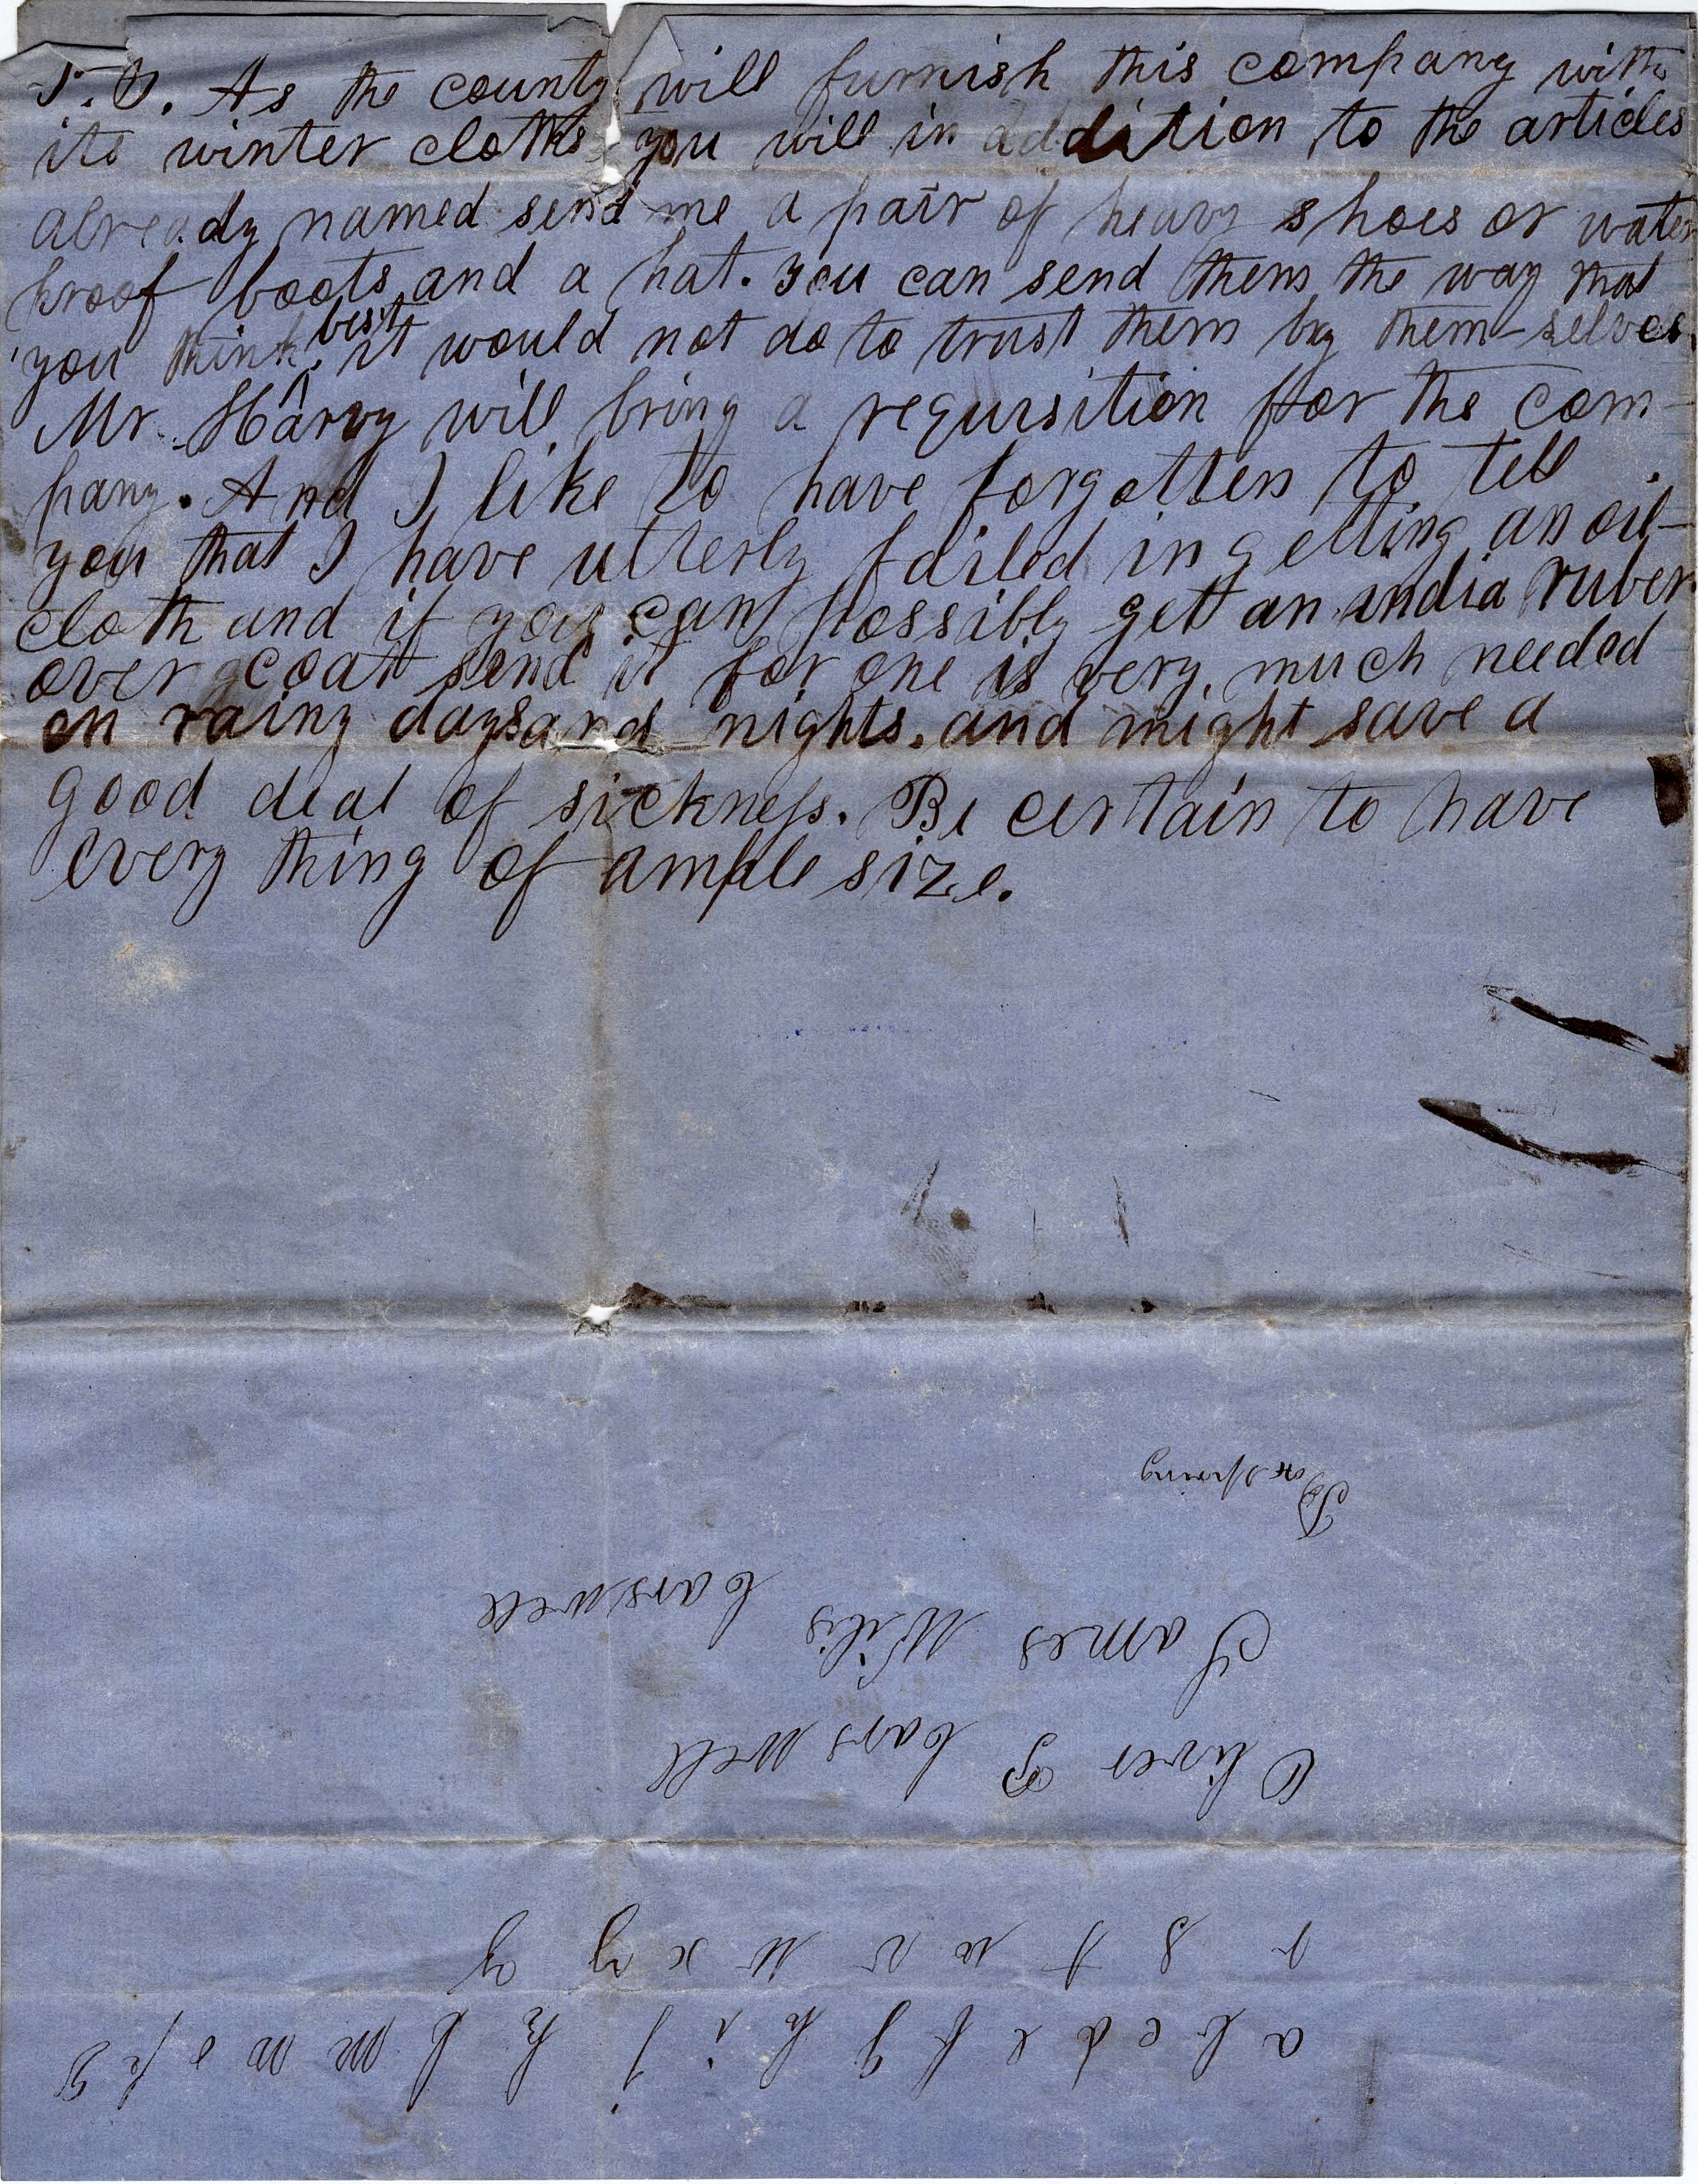 P.S. As the county will furnish this company with
its winter cloths you will in addition to the articles
already named send me a pair of heavy shoes or water
proof boots and a hat. you can send them the way that
you think best it would not do to trust them by them-selves.
Mr. Harvy will bring a requisition for the com-
pany. And I like to have forgotten to tell
you that I have utterly failed in getting an oil-
cloth and if you can possibly get an india ruber
over coat send it for one is very much needed
on rainy days and nights. and might save a
good deal of sickness. Be certain to have
every thing of ample size.
a b c d e f g h i j k l m n o p q
r s t u v w x y z
Oliver P Carswell
James Wilis Carswell